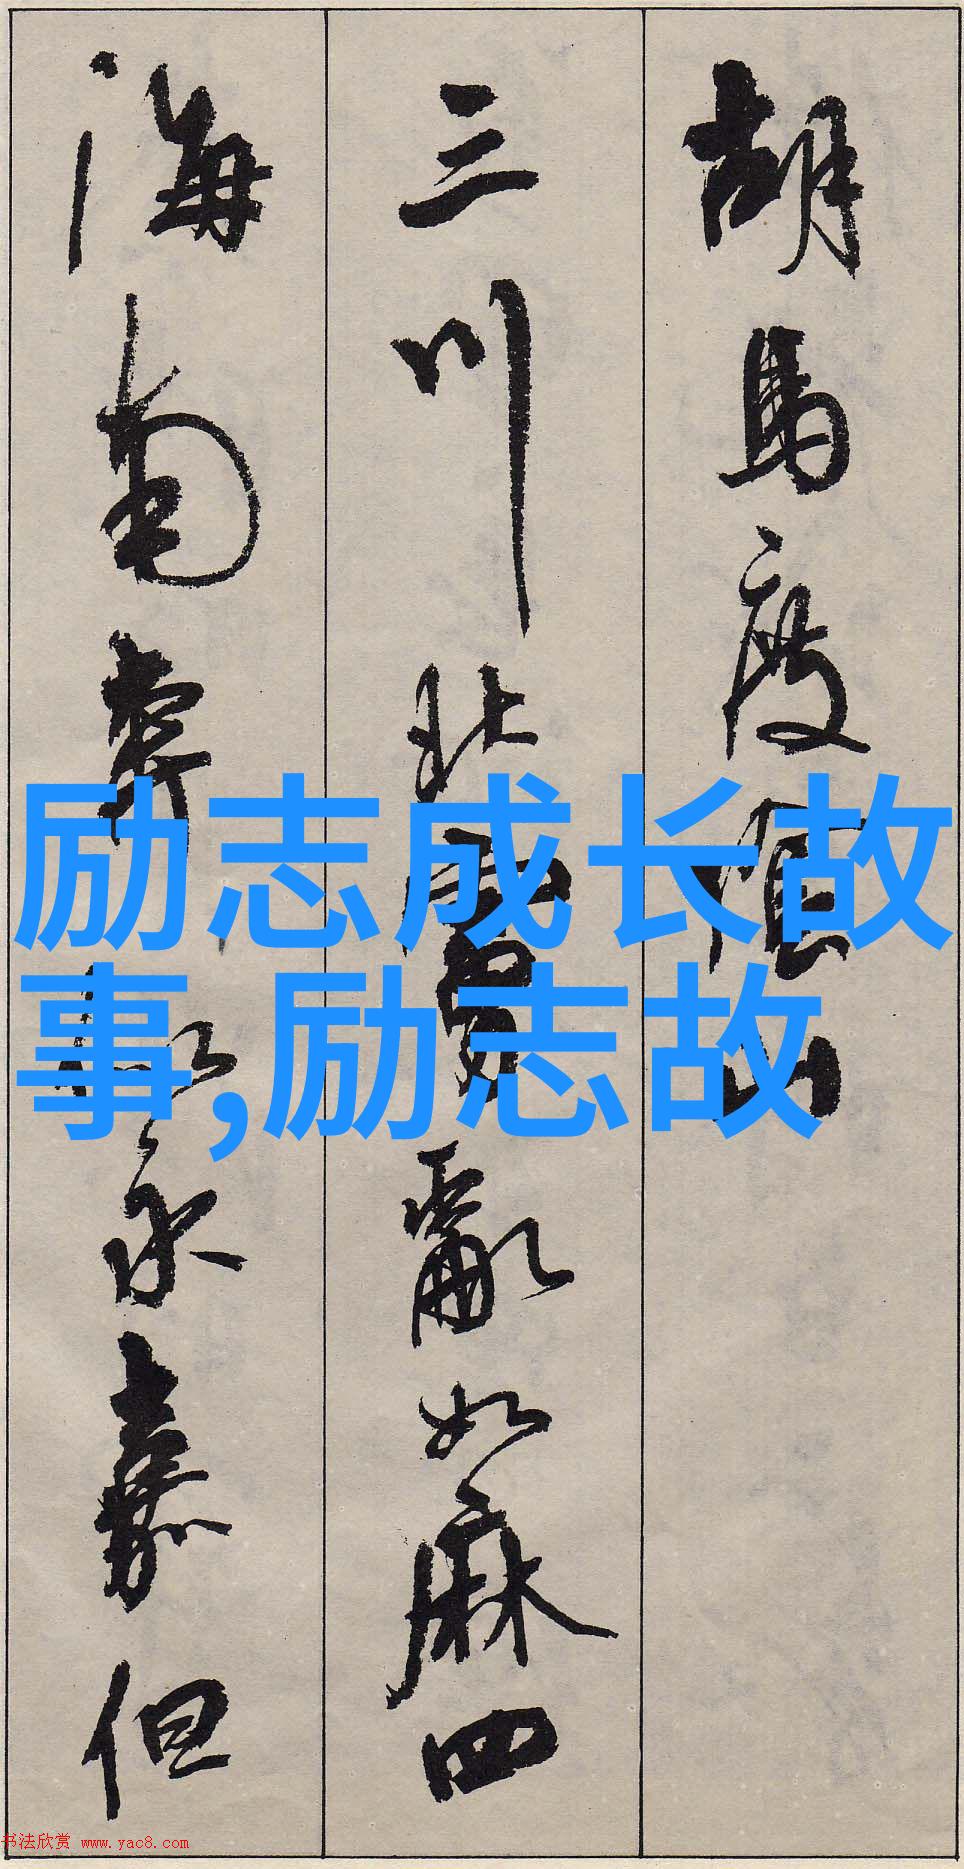 胡馬度陰山
三川北虜亂如麻四
海南奔似永嘉但
励志成长故
事,励志故
书法欣赏 www.yac8.com